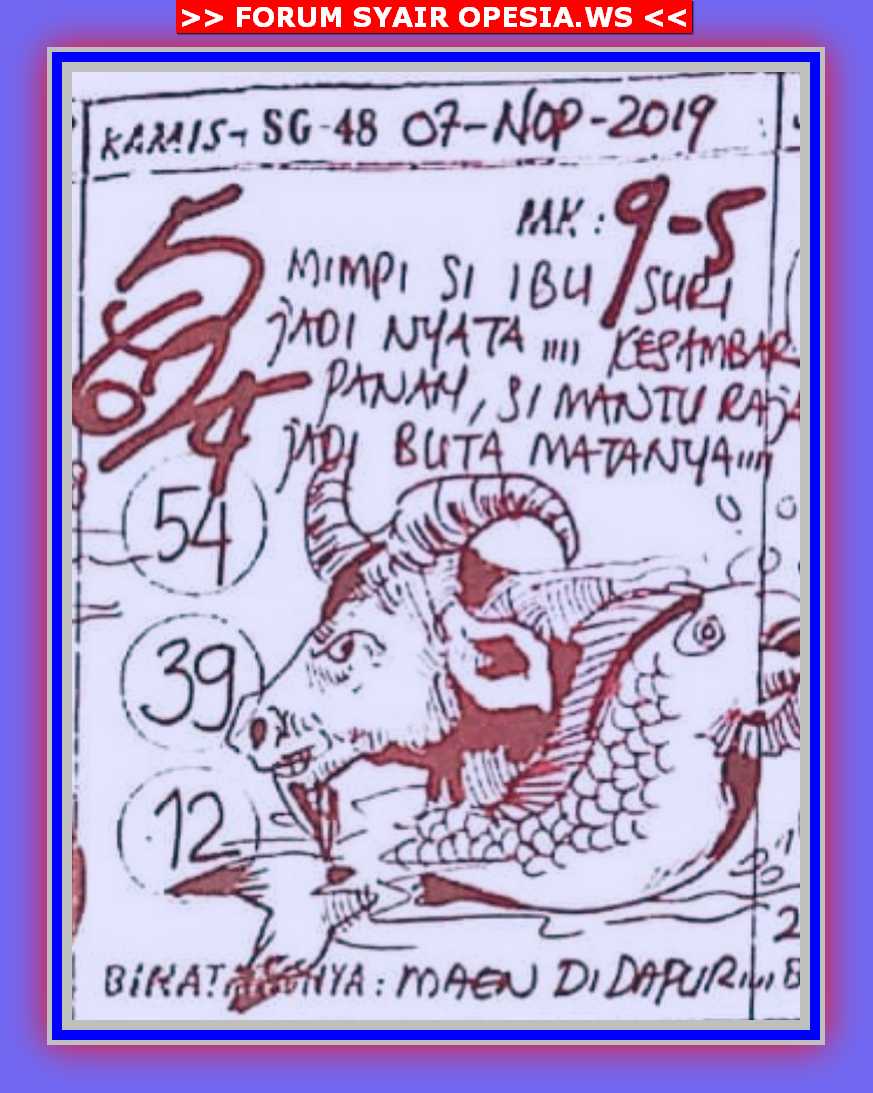 >> FORUM SYAIR OPESIA.WS <<
KAMIS - SG-48 07-NOP-2019
PAK : 9-5
5
6
4
MIMPI SI IBU SURI
JADI NYATA ,,,, KESAMBAR
PANAH, SI MANTU RAJA
JADI BUTA MATANYA ,,,,
54
39
12
BINATANGNYA : MAEN DI DAPUR ,,,,